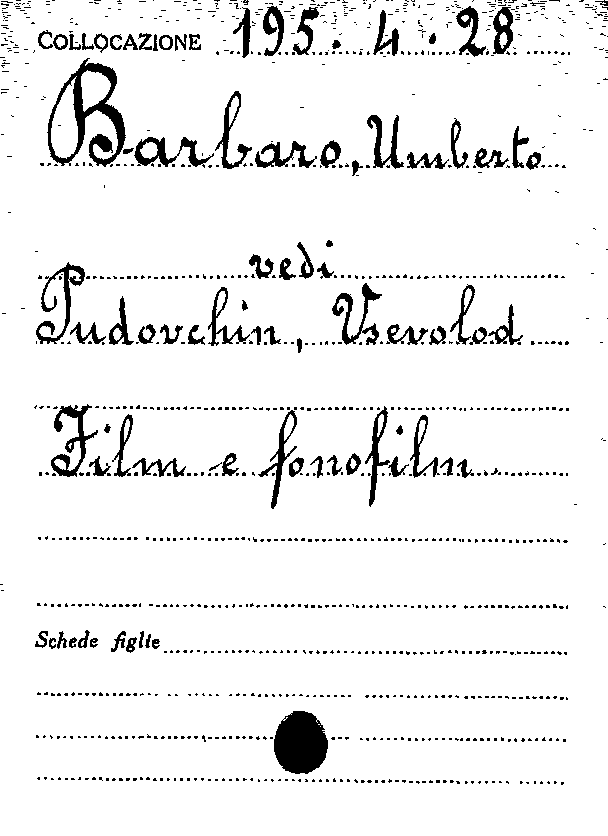 COLLOCAZIONE 195. 4. 28
Barbaro, Umberto
vedi
Pudovchin, Vsevolod
Film e fonofilm
Schede figlie